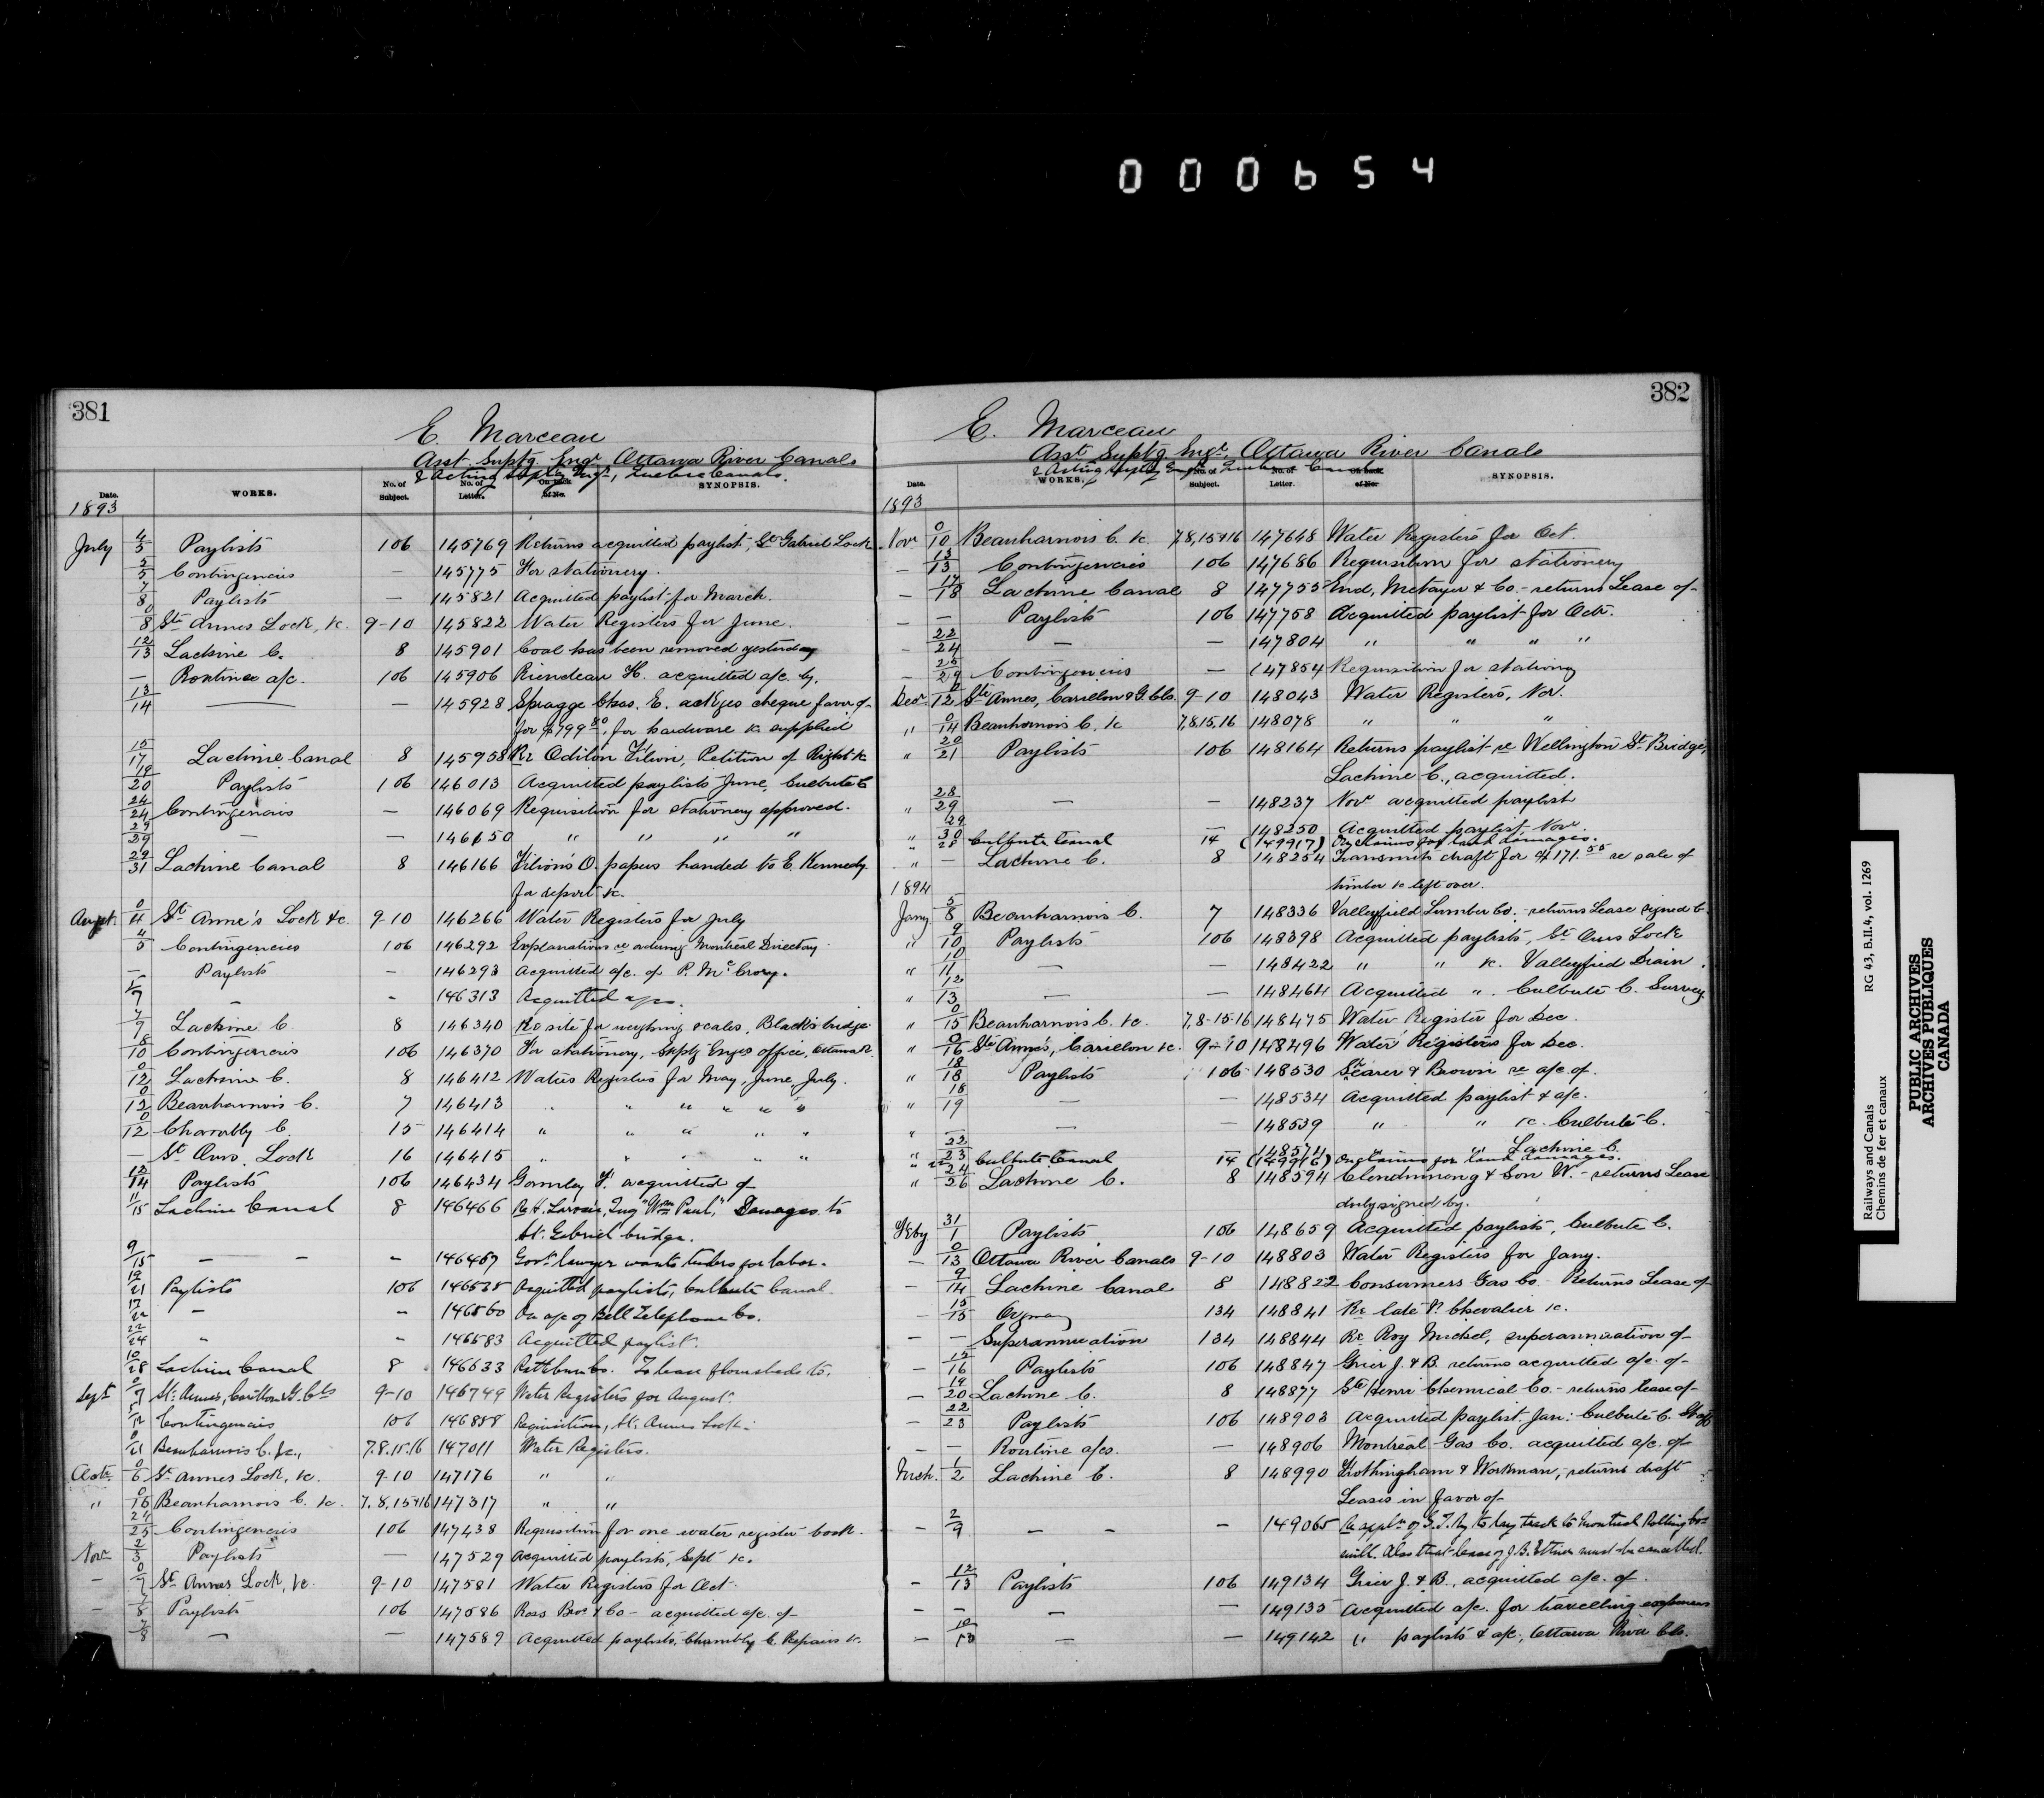 000654
381
E. Marceau
Asst. Suptg. Engr. Ottawa River Canals
& Acting Suptg Engr, Quebec Canals.
Date. WORKS. No. of Subject. No. of Letter. On back of No. SYNOPSIS.
1893
July 4/5 Paylists 106 145769 Returns acquitted paylist, St. Gabriel Lock
5/5 Contingencies — 145775 For stationery.
7/8 Paylists — 145821 Acquitted paylist for March.
0/8 Ste Annes Lock, &c 9-10 145822 Water Registers for June.
12/13 Lachine C. 8 145901 Coal has been removed yesterday
— Routine a/c. 106 145906 Riendeau H. acquitted a/c. by.
13/14 — — 145928 Spragge Chas. E. ackges cheque favor of
for $799.80, for hardware &c supplied
15/17 Lachine Canal 8 145958 Re Odilon Filion, Petition of Right &c
19/20 Paylists 106 146013 Acquitted paylists June, Culbute C
24/24 Contingencies — 146069 Requisition for stationery approved.
29/29 — — 146150 " " " "
29/31 Lachine Canal 8 146166 Filion's O. papers handed to E. Kennedy
for report &c.
Augst 0/4 St. Anne's Lock &c. 9-10 146266 Water Registers for July
4/5 Contingencies 106 146292 Explanations re ordering Montreal Directory.
— Paylists — 146293 Acquitted a/c. of P. McCrory.
/7 — - 146313 Acquitted a/cs.
7/9 Lachine C. 8 146340 Re site for weighing scales, Black's bridge
8/10 Contingencies 106 146370 For stationery, Suptg Engrs office, Ottawa R.
0/12 Lachine C. 8 146412 Water Registers for May, June, July.
0/12 Beauharnois C. 7 146413 " " " " " "
0/12 Chambly C. 15 146414 " " " " "
— St. Ours. Lock 16 146415 " " " " "
12/14 Paylists 106 146434 Gormley F. acquitted of
11/15 Lachine Canal 8 146466 Re H. Larose, Tug "Wm Paul," Damages to
St. Gabriel bridge.
9/15 — — - 146467 Govt. lawyer wants tenders for labor.
19/21 Paylists 106 146535 Acquitted paylists, Culbute Canal.
17/22 — - 146560 On a/c of Bell Telephone Co.
22/24 " - 146583 Acquitted paylist.
10/28 Lachine Canal 8 146633 Rathbun Co. To lease flour sheds to.
Sept 0/7 St. Annes, Carillon & G. Cls 9-10 146749 Water Registers for August.
/12 Contingencies 106 146858 Requisition, St. Annes Lock.
0/21 Beauharnois C. &c., 7.8.15.16 147011 Water Registers.
Octr. 0/6 St. Annes Lock, &c. 9-10 147176 " "
" 0/16 Beauharnois C. &c. 7.8,15+16 147317 " "
24/25 Contingencies 106 147438 Requisition for one water register book.
Novr 2/3 Paylists — 147529 Acquitted paylists, Sept &c.
— 0/7 St. Annes Lock, &c. 9-10 147581 Water Registers for Oct.
— 7/8 Paylists 106 147586 Ross Bros & Co — acquitted a/c. of
7/8 — — 147589 Acquitted paylists, Chambly C. Repairs &c.
382
E. Marceau
Asst. Suptg. Engr. Ottawa River Canals
& Acting Suptg Engr Quebec Canals
Date. WORKS. No. of Subject. No. of Letter. On back of No. SYNOPSIS.
1893
Novr 0/10 Beauharnois C. &c. 7,8,15+16 147648 Water Registers for Oct.
— 13/13 Contingencies 106 147686 Requisition for stationery
— 17/18 Lachine Canal 8 147755 End, Metayer & Co. — returns Lease of
— — Paylists 106 147758 Acquitted paylist for Octr.
— 22/24 — — 147804 " " " "
— 25/29 Contingencies — 147854 Requisition for stationery
Decr 0/12 Ste Annes, Carillon & G. Cls. 9-10 148043 Water Registers, Nov.
" 0/14 Beauharnois C. &c 7,8,15,16 148078 " " "
" 20/21 Paylists 106 148164 Returns paylist re Wellington St. Bridge,
Lachine C., acquitted.
" 28/29 — — 148237 Novr acquitted paylist
" 29/30 — 148250 Acquitted paylist, Novr.
" 28 Culbute Canal 14 (149917) On claims for land damages.
" — Lachine C. 8 148254 Transmits draft for $171.55 re sale of
timber &c left over.
1894
Jany 5/8 Beauharnois C. 7 148336 Valleyfield Lumber Co. — returns Lease signed by
" 9/10 Paylists 106 148398 Acquitted paylists, St. Ours Lock
" 10/11 — — 148422 " " &c. Valleyfied Drain.
" 12/13 — — 148464 Acquitted ". Culbute C. Survey.
" 0/15 Beauharnois C. &c. 7,8-15-16 148475 Water Register for Dec.
" 0/16 Ste Anne's, Carillon &c. 9-10 148496 Water Registers for Dec.
" 18/18 Paylists 106 148530 Scarer & Brown re a/c. of.
" 18/19 — — 148534 Acquitted paylist & a/c.
" — — — 148539 " " &c. Culbute C.
" 22/23 — 148574 " " Lachine C.
" 22 Culbute Canal 14 (149916) On claims for land damages.
" 24/26 Lachine C. 8 148594 Clendinneng & Son W. — returns Lease
duly signed by.
Feby 31/1 Paylists 106 148659 Acquitted paylists, Culbute C.
— 0/13 Ottawa River Canals 9-10 148803 Water Registers for Jany.
— 9/14 Lachine Canal 8 148822 Consumers Gas Co. — Returns Lease of
— 15/15 134 148841 Re late P. Chevalier &c.
— — Superannuation 134 148844 Re Roy Michel, superannuation of
— 12/16 Paylists 106 148847 Grier J. & B. returns acquitted a/c. of
— 19/20 Lachine C. 8 148877 Ste. Henri Chemical Co. — returns lease of
— 22/23 Paylists 106 148903 Acquitted paylist. Jan: Culbute C. Staff
— — Routine a/cs. — 148906 Montreal Gas Co. acquitted a/c. of
Mch. 1/2 Lachine C. 8 148990 Frothingham & Workman, returns draft
Leases in favor of
— 2/9 — — — 149065 Re appln of G.T. Ry to lay track to Montreal Rolling
mill. Also that lease of J.B. must be cancelled.
— 12/13 Paylists 106 149134 Grier J. & B., acquitted a/c. of.
— — — — 149135 Acquitted a/c. for travelling expenses
— 10/13 — — 149142 " paylists & a/c, Ottawa River Cls.
Railways and Canals
Chemins de fer et canaux
RG 43, B.II.4, vol. 1269
PUBLIC ARCHIVES
ARCHIVES PUBLIQUES
CANADA